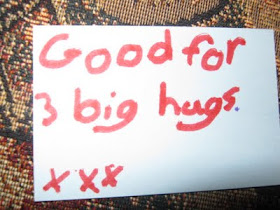 Good for
3 big hugs.
x x x